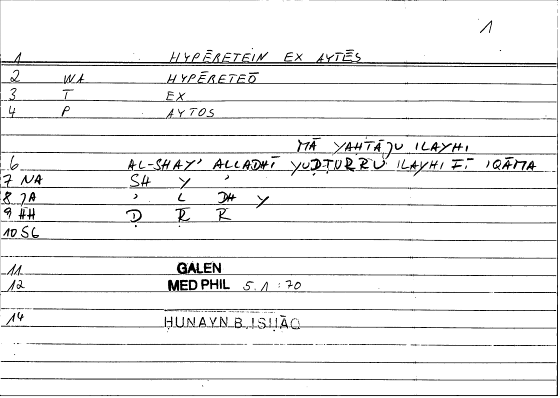 1
1 HYPĒRETEIN EX AYTĒS
2 WA HYPĒRETEŌ
3 T EX
4 P AYTOS
MĀ YAHTĀJU ILAYHI
6 AL-SHAY' ALLADHĪ YUḌṬURRU ILAYHI FĪ IQĀMA
7 NA SH Y '
8 JA ' L DH Y
9 HH Ḍ Ṛ R
10 SG
11 GALEN
12 MED PHIL 5.1:70
14 HUNAYN B. ISHĀQ